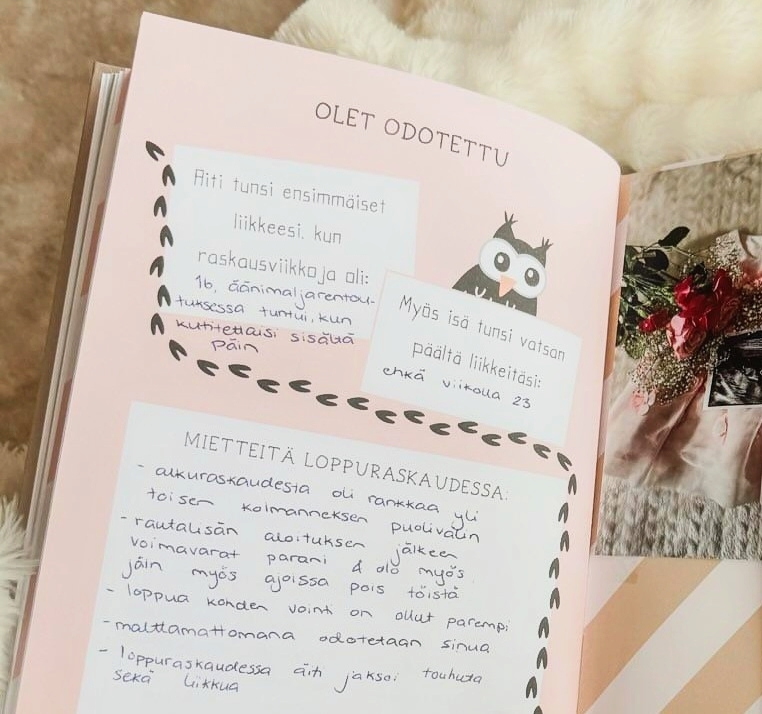 OLET ODOTETTU
Äiti tunsi ensimmäiset
liikkeesi, kun
raskausviikkoja oli:
16, äänimaljarentou-
tuksessa tuntui, kun
kutitettaisi sisältä
päin
Myös isä tunsi vatsan
päältä liikkeitäsi:
ehkä viikolla 23
MIETTEITÄ LOPPURASKAUDESSA:
- alkuraskaudesta oli rankkaa yli
toisen kolmanneksen puolivälin
- rautalisän aloituksen jälkeen
voimavarat parani & olo myös
jäin myös ajoissa pois töistä
- loppua kohden vointi on ollut parempi
- malttamattomana odotetaan sinua
- loppuraskaudessa äiti jaksoi touhuta
sekä liikkua